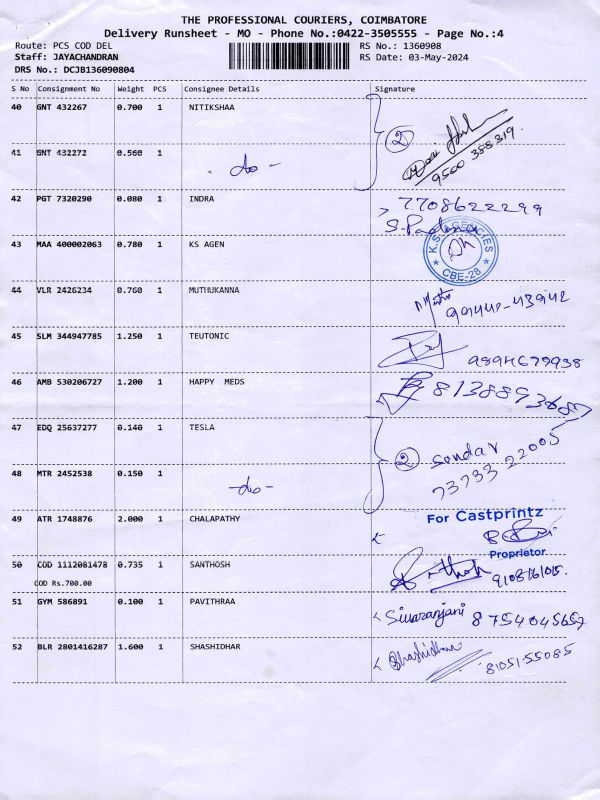 THE PROFESSIONAL COURIERS, COIMBATORE
Delivery Runsheet - MO - Phone No.:0422-3505555 - Page No.:4
Route: PCS COD DEL RS No.: 1360908
Staff: JAYACHANDRAN RS Date: 03-May-2024
DRS No.: DCJB136090804
S No Consignment No Weight PCS Consignee Details Signature
40 GNT 432267 0.700 1 NITIKSHAA 2
9500 388 319
41 GNT 432272 0.560 1 - do -
42 PGT 7320290 0.080 1 INDRA 7708622299
43 MAA 400002063 0.780 1 KS AGEN K.S. AGENCIES
CBE-28
44 VLR 2426234 0.760 1 MUTHUKANNA 99440-43942
45 SLM 344947785 1.250 1 TEUTONIC 9894679938
46 AMB 530206727 1.200 1 HAPPY MEDS
47 EDQ 25637277 0.140 1 TESLA 2 sundar
73733 22005
48 MTR 2452538 0.150 1 - do -
49 ATR 1748876 2.000 1 CHALAPATHY For Castprintz
Proprietor
50 COD 1112081478 0.735 1 SANTHOSH
COD Rs.700.00
51 GYM 586891 0.100 1 PAVITHRAA Sivaranjani 8754045652
52 BLR 2801416287 1.600 1 SHASHIDHAR Shashidhar 81051-55085